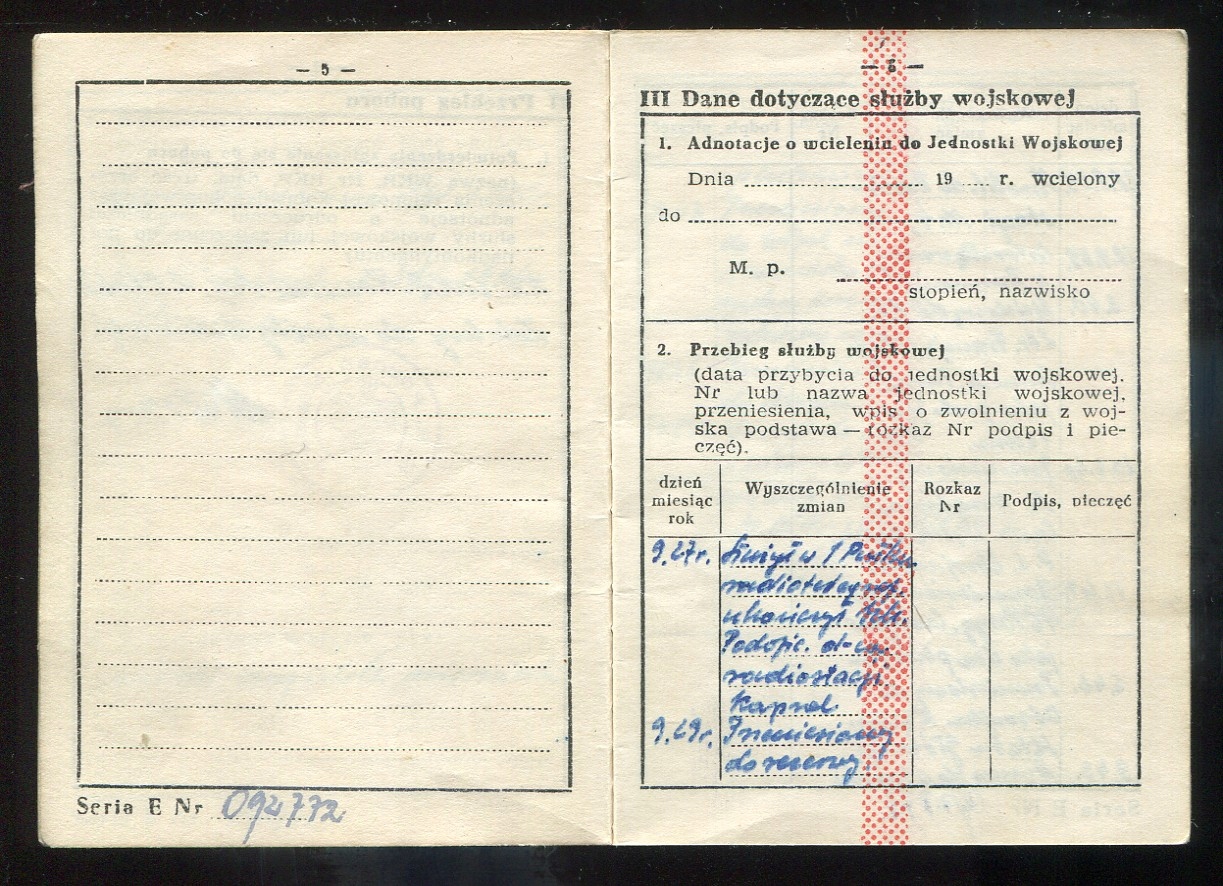 — 5 —
Seria E Nr 092772
— 6 —
III Dane dotyczące służby wojskowej
1. Adnotacje o wcieleniu do Jednostki Wojskowej
Dnia 19 r. wcielony
do
M. p.
stopień, nazwisko
2. Przebieg służby wojskowej
(data przybycia do jednostki wojskowej.
Nr lub nazwa jednostki wojskowej,
przeniesienia, wpis o zwolnieniu z woj-
ska podstawa — rozkaz Nr podpis i pie-
częć).
dzień
miesiąc
rok
Wyszczególnienie
zmian
Rozkaz
Nr
Podpis, pieczęć
9.27r. Służył w 1 Pułku
radiotelegraf.
ukończył szk.
Podofic. d-cy
radiostacji
Kapral
9.29r. Przeniesiony
do rezerwy